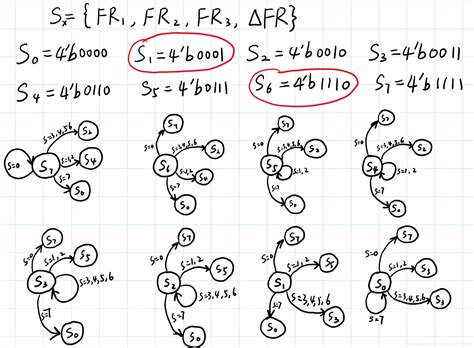 Sx = { FR1, FR2, FR3, ΔFR}
S0=4'b0000 S1=4'b0001 S2=4'b0010 S3=4'b0011
S4=4'b0110 S5=4'b0111 S6=4'b1110 S7=4'b1111
s=3,4,5,6 S2
s=0 S7 s=1,2 S4
s=7 S0
S7
s=0 s=3,4,5,6 S2
S6 s=1,2 S4
s=7 S0
S7
s=0 s=3,4,5,6 S2
S5 s=1,2
s=7 S0
S7
s=0 s=3,4,5,6 S2
S4 s=1,2
s=7 S0
S7
s=0 s=1,2 S5
S3 s=3,4,5,6
s=7 S0
S7
s=0 s=1,2 S5
S2 s=3,4,5,6
s=7 S0
S7
s=0 s=1,2 S5
S1 s=3,4,5,6 S3
s=7 S0
S7
s=0 s=1,2 S3
S0 s=3,4,5,6 S2
s=7